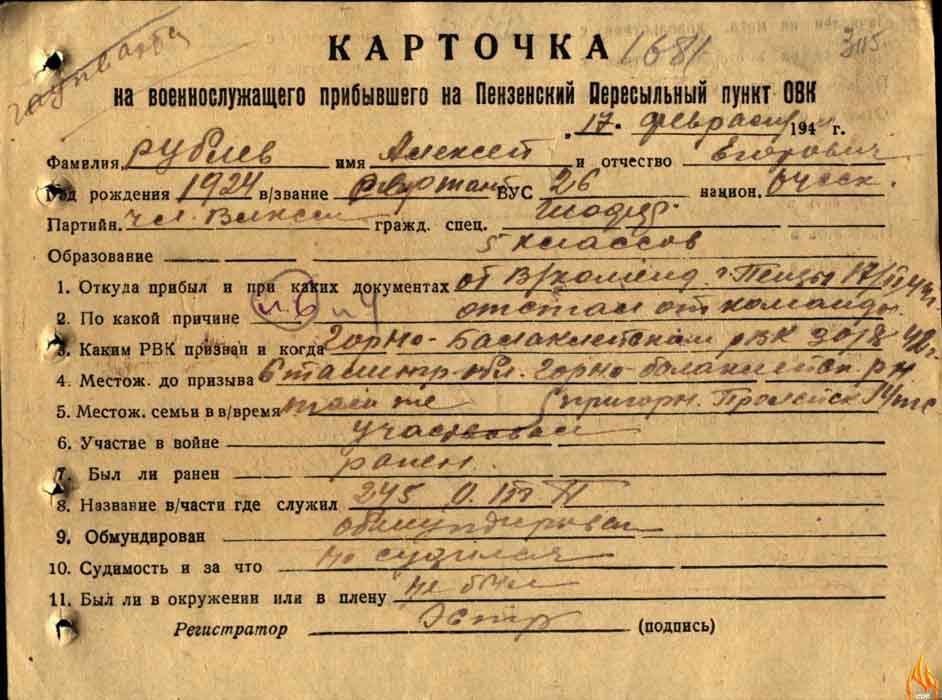 КАРТОЧКА 1681
на военнослужащего прибывшего на Пензенский Пересыльный пункт ОВК
„17" февраля 194 г.
Фамилия Рублев имя Алексей и отчество Егорович
Год рождения 1924 в/звание сержант ВУС 26 национ. русск.
Партийн. чл. Влксм гражд. спец.
Образование 5 классов
1. Откуда прибыл и при каких документах от В/коменд. г. Пензы 17/II
2. По какой причине отстал от команды
3. Каким РВК призван и когда Горно-Балаклейским РВК
4. Местож. до призыва Сталингр. обл. Горно-балаклейск. р-н
5. Местож. семьи в в/время там же
6. Участие в войне участвовал
7. Был ли ранен ранен
8. Название в/части где служил 245
9. Обмундирован обмундирован
10. Судимость и за что не судился
11. Был ли в окружении или в плену не был
Регистратор (подпись)